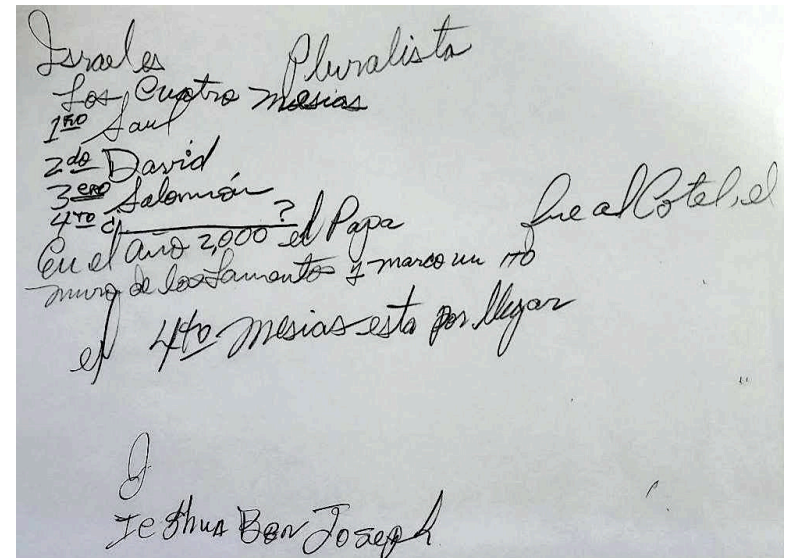 Israel es Pluralista
Los Cuatro mesias
1ro Saul
2do David
3ero Salomón
4to ¿__________?
En el año 2,000 el Papa fue al Cotel, el
muro de los Lamentos y marco un ITO
el 4to mesias esta por llegar
Ieshua Ben Joseph